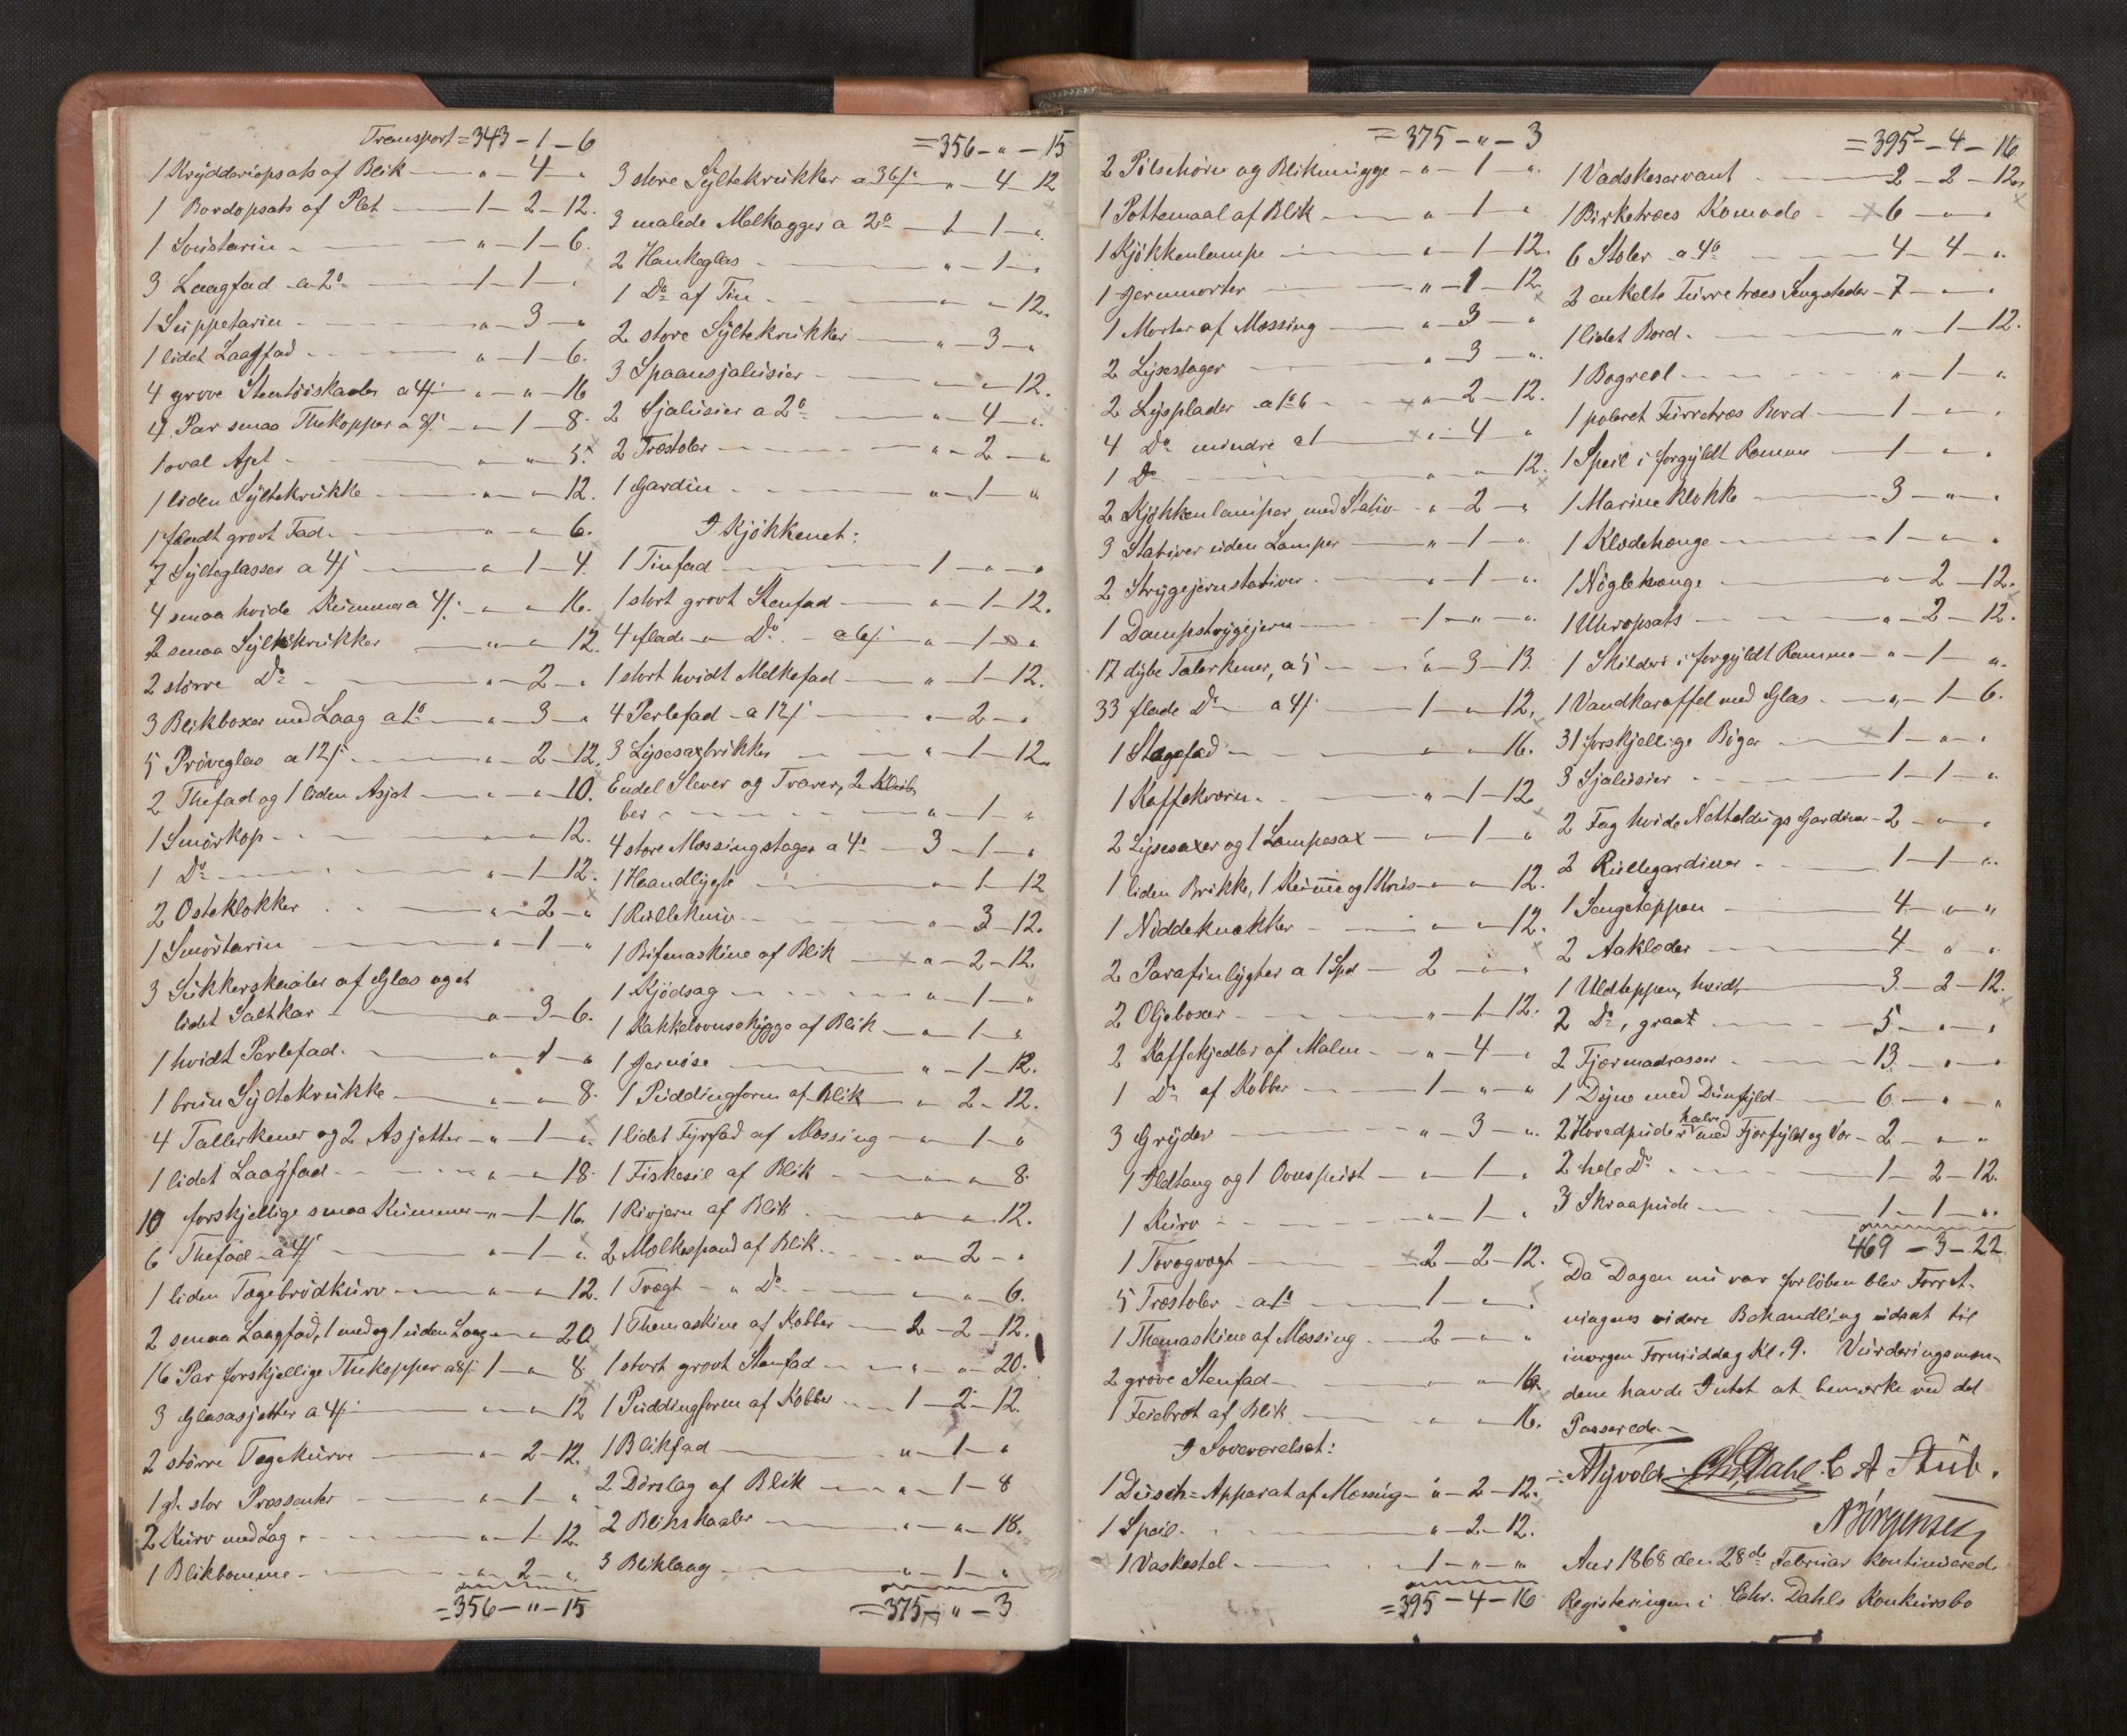 Transport = 343 – 1 – 6
1 Krydderiopsats af Blik — " — 4 — "
1 Bordopsats af Plet — 1 – 2 – 12.
1 Sousterin — " — 1 – 6.
3 Laagfad a 2o — 1 – 1 — "
1 Suppeterin — " — 3 — "
1 lidet Laagfad — " — 1 – 6.
4 grove Stentöiskaaler a 4ſ — " — " — 16
4 Par smaa Thekopper a 8ſ — " — 1 – 8.
1 oval Asjet — " — " — 5.
1 liden Syltekrukke — " — " — 12.
1 fladt grovt Fad — " — " — 6.
7 Sylteglasser a 4ſ — " — 1 – 4.
4 smaa hvide Kummer a 4ſ — " — " — 16.
2 smaa Syltekrukker — " — " — 12.
2 större Do — " — 2 — "
3 Blikboxer med Laag a 1o — " — 3 — "
5 Pröveglas a 12ſ — " — 2 – 12.
2 Thefad og 1 liden Asjet — " — " — 10.
1 Smörkop — " — " — 12.
1 Do — " — 1 – 12.
2 Osteklokker — " — 2 — "
1 Smörterin — " — 1 — "
3 Sukkerskaaler af Glas og et
lidet Saltkar — " — 3 – 6.
1 hvidt Perlefad — " — 1 — "
1 brun Syltekrukke — " — " — 8.
4 Tallerkener og 2 Asjetter — " — 1 — "
1 lidet Laagfad — " — " — 18.
10 forskjellige smaa Kummer — " — 1 – 16.
6 Thefad a 4ſ — " — 1 — "
1 liden Tægebrödkurv — " — " — 12.
2 smaa Laagfad, 1 med og 1 uden Laag — " — 20
16 Par forskjellige Thekopper a 8ſ — 1 — " — 8
3 Glasasjetter a 4ſ — " — " — 12
2 större Tægekurve — " — 2 – 12.
1 gl. stor Præssenter — " — 1 — "
2 Kurv med Lag — " — 1 – 12.
1 Blikbomme — " — 2 — "
= 356 – " – 15
= 356 – " – 15
3 store Syltekrukker a 36ſ — " — 4 – 12
3 malede Melkagger a 2o — 1 – 1 — "
2 Hankeglas — " — 1 — "
1 Do af Tin — " — " — 12.
2 store Syltekrukker — " — 3 — "
3 Spaansjalusier — " — " — 12.
2 Sjalusier a 2o — " — 4 — "
2 Træstoler — " — 2 — "
1 Gardin — " — 1 — "
I Kjökkenet:
1 Tinfad — 1 — " — "
1 stort grovt Stenfad — " — 1 – 12.
4 flade " Do a 6ſ — " — 1 — "
1 stort hvidt Melkefad — " — 1 – 12.
4 Perlefad a 12ſ — " — 2 — "
3 Lysesaxbrikker — " — 1 – 12.
Endel Slever og Tvarer, 2
ber — " — 1 — "
4 store Messingstager a 4o — 3 – 1 — "
1 Haandlygte — " — 1 – 12
1 Rullekniv — " — 3 – 12.
1 Bifmaskine af Blik — " — 2 – 12.
1 Kjödsag — " — 1 — "
1 Kakkelovnsskygge af Blik — " — 1 — "
1 Jernöse — " — 1 – 12.
1 Puddingform af Blik — " — 2 – 12.
1 lidet Fyrfad af Messing — " — 1 — "
1 Fiskesil af Blik — " — " — 8.
1 Rivjern af Blik — " — " — 12.
2 Melkespand af Blik — " — 2 — "
1 Tragt " Do — " — " — 6.
1 Themaskine af Kobber — 2 – 2 – 12.
1 stort grovt Stenfad — " — " — 20.
1 Puddingform af Kobber — 1 – 2 – 12.
1 Blikfad — " — 1 — "
2 Dörslag af Blik — " — 1 – 8
2 Blikskaaler — " — " — 18.
3 Bliklaag — " — 1 — "
= 375 – " – 3
= 375 – " – 3
2 Pölsehörn og Blikmugge — " — 1 — "
1 Pottemaal af Blik — " — 1 — "
1 Kjökkenlampe — " — 1 – 12.
1 Jernmorter — " — 1 – 12.
1 Morter af Messing — " — 3 — "
2 Lysestager — " — 3 — "
2 Lysplader a 1o 6 — " — 2 – 12.
4 Do mindre a 1 — " — 4 — "
1 Do — " — " — 12.
2 Kjökkenlamper med Stativ — " — 2 — "
3 Stativer uden Lamper — " — 1 — "
2 Strygejernstativer — " — 1 — "
1 Dampstrygejern — 1 — " — "
17 dybe Talerkener, a 5 — " — 3 – 13.
33 flade Do a 4ſ — 1 — " — 12.
1 Stegefad — " — " — 16.
1 Kaffekværn — " — 1 – 12
2 Lysesaxer og 1 Lampesax — " — 1 — "
1 liden Brikke, 1 Kumme og 1 Krus — " — 12.
1 Nöddeknækker — " — " — 12.
2 Parafinlygter a 1 Spd — 2 — " — "
2 Oljeboxer — " — 1 – 12.
2 Kaffekjedler af Malm — " — 4 — "
1 Do af Kobber — 1 — " — "
3 Gryder — " — 3 — "
1 Ildtang og 1 Ovnspist — " — 1 — "
1 Kurv — " — 1 — "
1 Torvogvægt — 2 – 2 – 12.
5 Træstoler a 1o — 1 — " — "
1 Themaskine af Messing — 2 — " — "
2 grove Stenfad — " — " — 16.
1 Feiebret af Blik — " — " — 16.
I Soveværelset:
1 Dusch-Apparat af Messing — " — 2 – 12.
1 Speil — " — 2 – 12.
1 Vaskestel — 1 — " — "
= 395 – 4 – 16
= 395 – 4 – 16
1 Vadskeservant — 2 – 2 – 12.
1 Birketræes Komode — 6 — " — "
6 Stoler a 4o — 4 – 4 — "
2 enkelte Furretræes Sengsteder — 7 — " — "
1 lidet Bord — " — 1 – 12.
1 Bogreol — " — 1 — "
1 poleret Furretræs Bord — 1 — " — "
1 Speil i forgyldt Ramme — 1 — " — "
1 Marine Klokke — 3 — " — "
1 Klædehænge — 1 — " — "
1 Nöglehænge — " — 2 – 12.
1 Uhropsats — " — 2 – 12.
1 Skilderi i forgyldt Ramme — " — 1 — "
1 Vandkaraffel med Glas — " — 1 – 6.
31 forskjellige Böger — 1 — " — "
3 Sjalusier — 1 – 1 — "
2 Fag hvide Netteldugs Gardiner — 2 — " — "
2 Rullegardiner — 1 – 1 — "
1 Sengeteppen — 4 — " — "
2 Aaklæder — 4 — " — "
1 Uldteppen, hvidt — 3 – 2 – 12.
2 Do, graat — 5 — " — "
2 Fjærmadrasser — 13 — " — "
1 Dyne med Dunfyld — 6 — " — "
2 Hovedpuder halve med Fjærfyld og Vor — 2 — " — "
2 hele Do — 1 – 2 – 12.
3 Skraapude — 1 – 1 — "
469 – 3 – 22
Da Dagen nu var forlöben blev Forret-
ningens videre Behandling udsat til
imorgen Formiddag Kl. 9. Vurderingsmæn-
dene havde Intet at bemærke ved det
Passerede.
A Myvold. Chr. Dahl. C A Stub.
N Jörgensen
Aar 1868 den 28de Februar kontinuered
Registeringen i Chr. Dahls Konkursbo